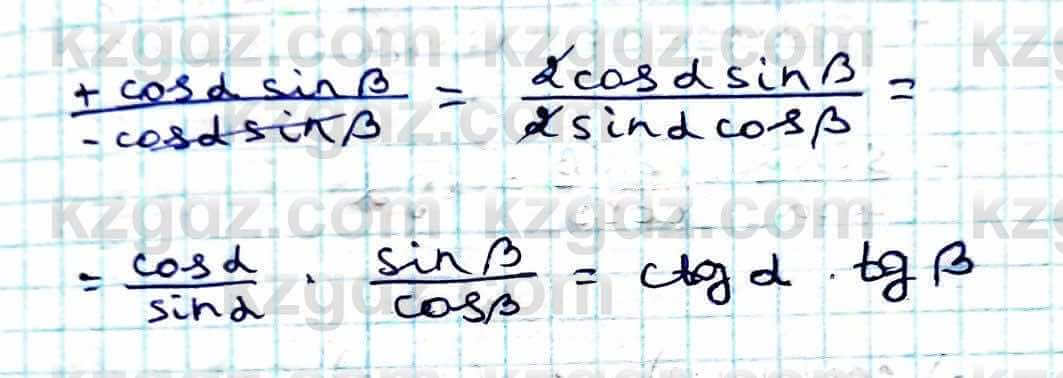 kzgdz.com kzgdz.com kz
+ cosα sinβ / - cosα sinβ = 2cosα sinβ / 2sinα cosβ =
kzgdz.com kzgdz.com kz
= cosα / sinα · sinβ / cosβ = ctgα · tgβ
kzgdz.com